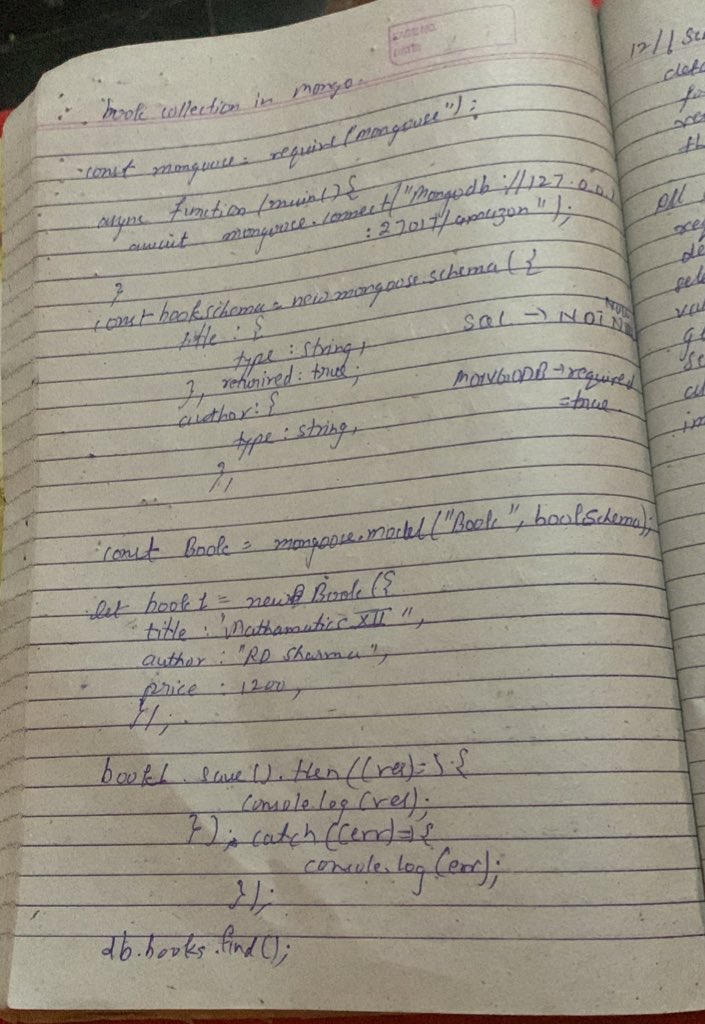 PAGE NO.
DATE
book collection in mongo.
const mongoose = require("mongoose");
async function (main() {
await mongoose.connect("Mongodb://127.0.0.1
:27017/amazon");
}
const bookschema = new mongoose.schema({
title : {
type : string,
}, retuired : true;
author : {
type : string,
},
SQL → NOT NULL
MONGODB → required
= true.
const Book = mongoose.model("Book", bookSchema);
let book1 = new Book({
title : "Mathamatics XII",
author : "RD Sharma",
price : 1200,
});
book1.save().then((res)=>{
console.log(res);
}); catch((err)=>{
console.log(err);
});
db.books.find();
12//